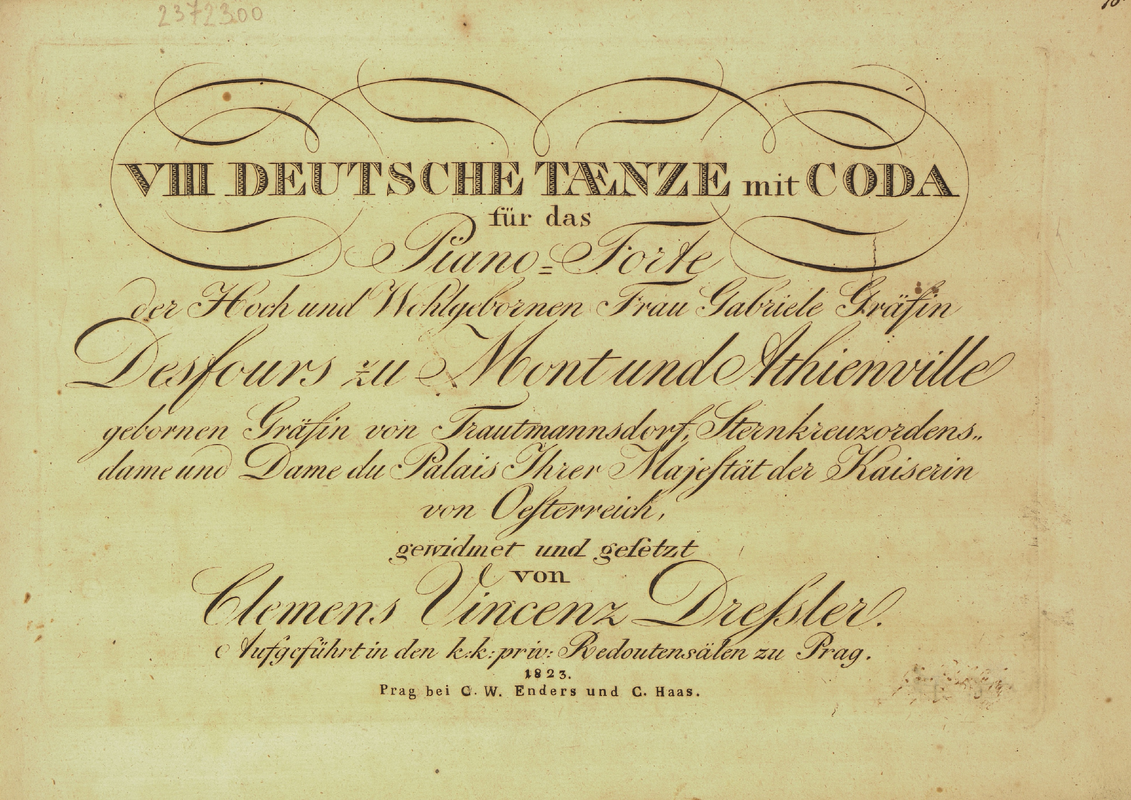 2372300
VIII DEUTSCHE TÆNZE mit CODA
für das
Piano=Forte
der Hoch und Wohlgebornen Frau Gabriele Gräfin
Desfours zu Mont und Athienville
gebornen Gräfin von Trautmannsdorf, Sternkreuzordens„
dame und Dame du Palais Ihrer Majeſtät der Kaiserin
von Oeſterreich,
gewidmet und geſetzt
von
Clemens Vincenz Dreſsler.
Aufgeführt in den k.k: priv: Redoutensälen zu Prag.
1823.
Prag bei C. W. Enders und C. Haas.